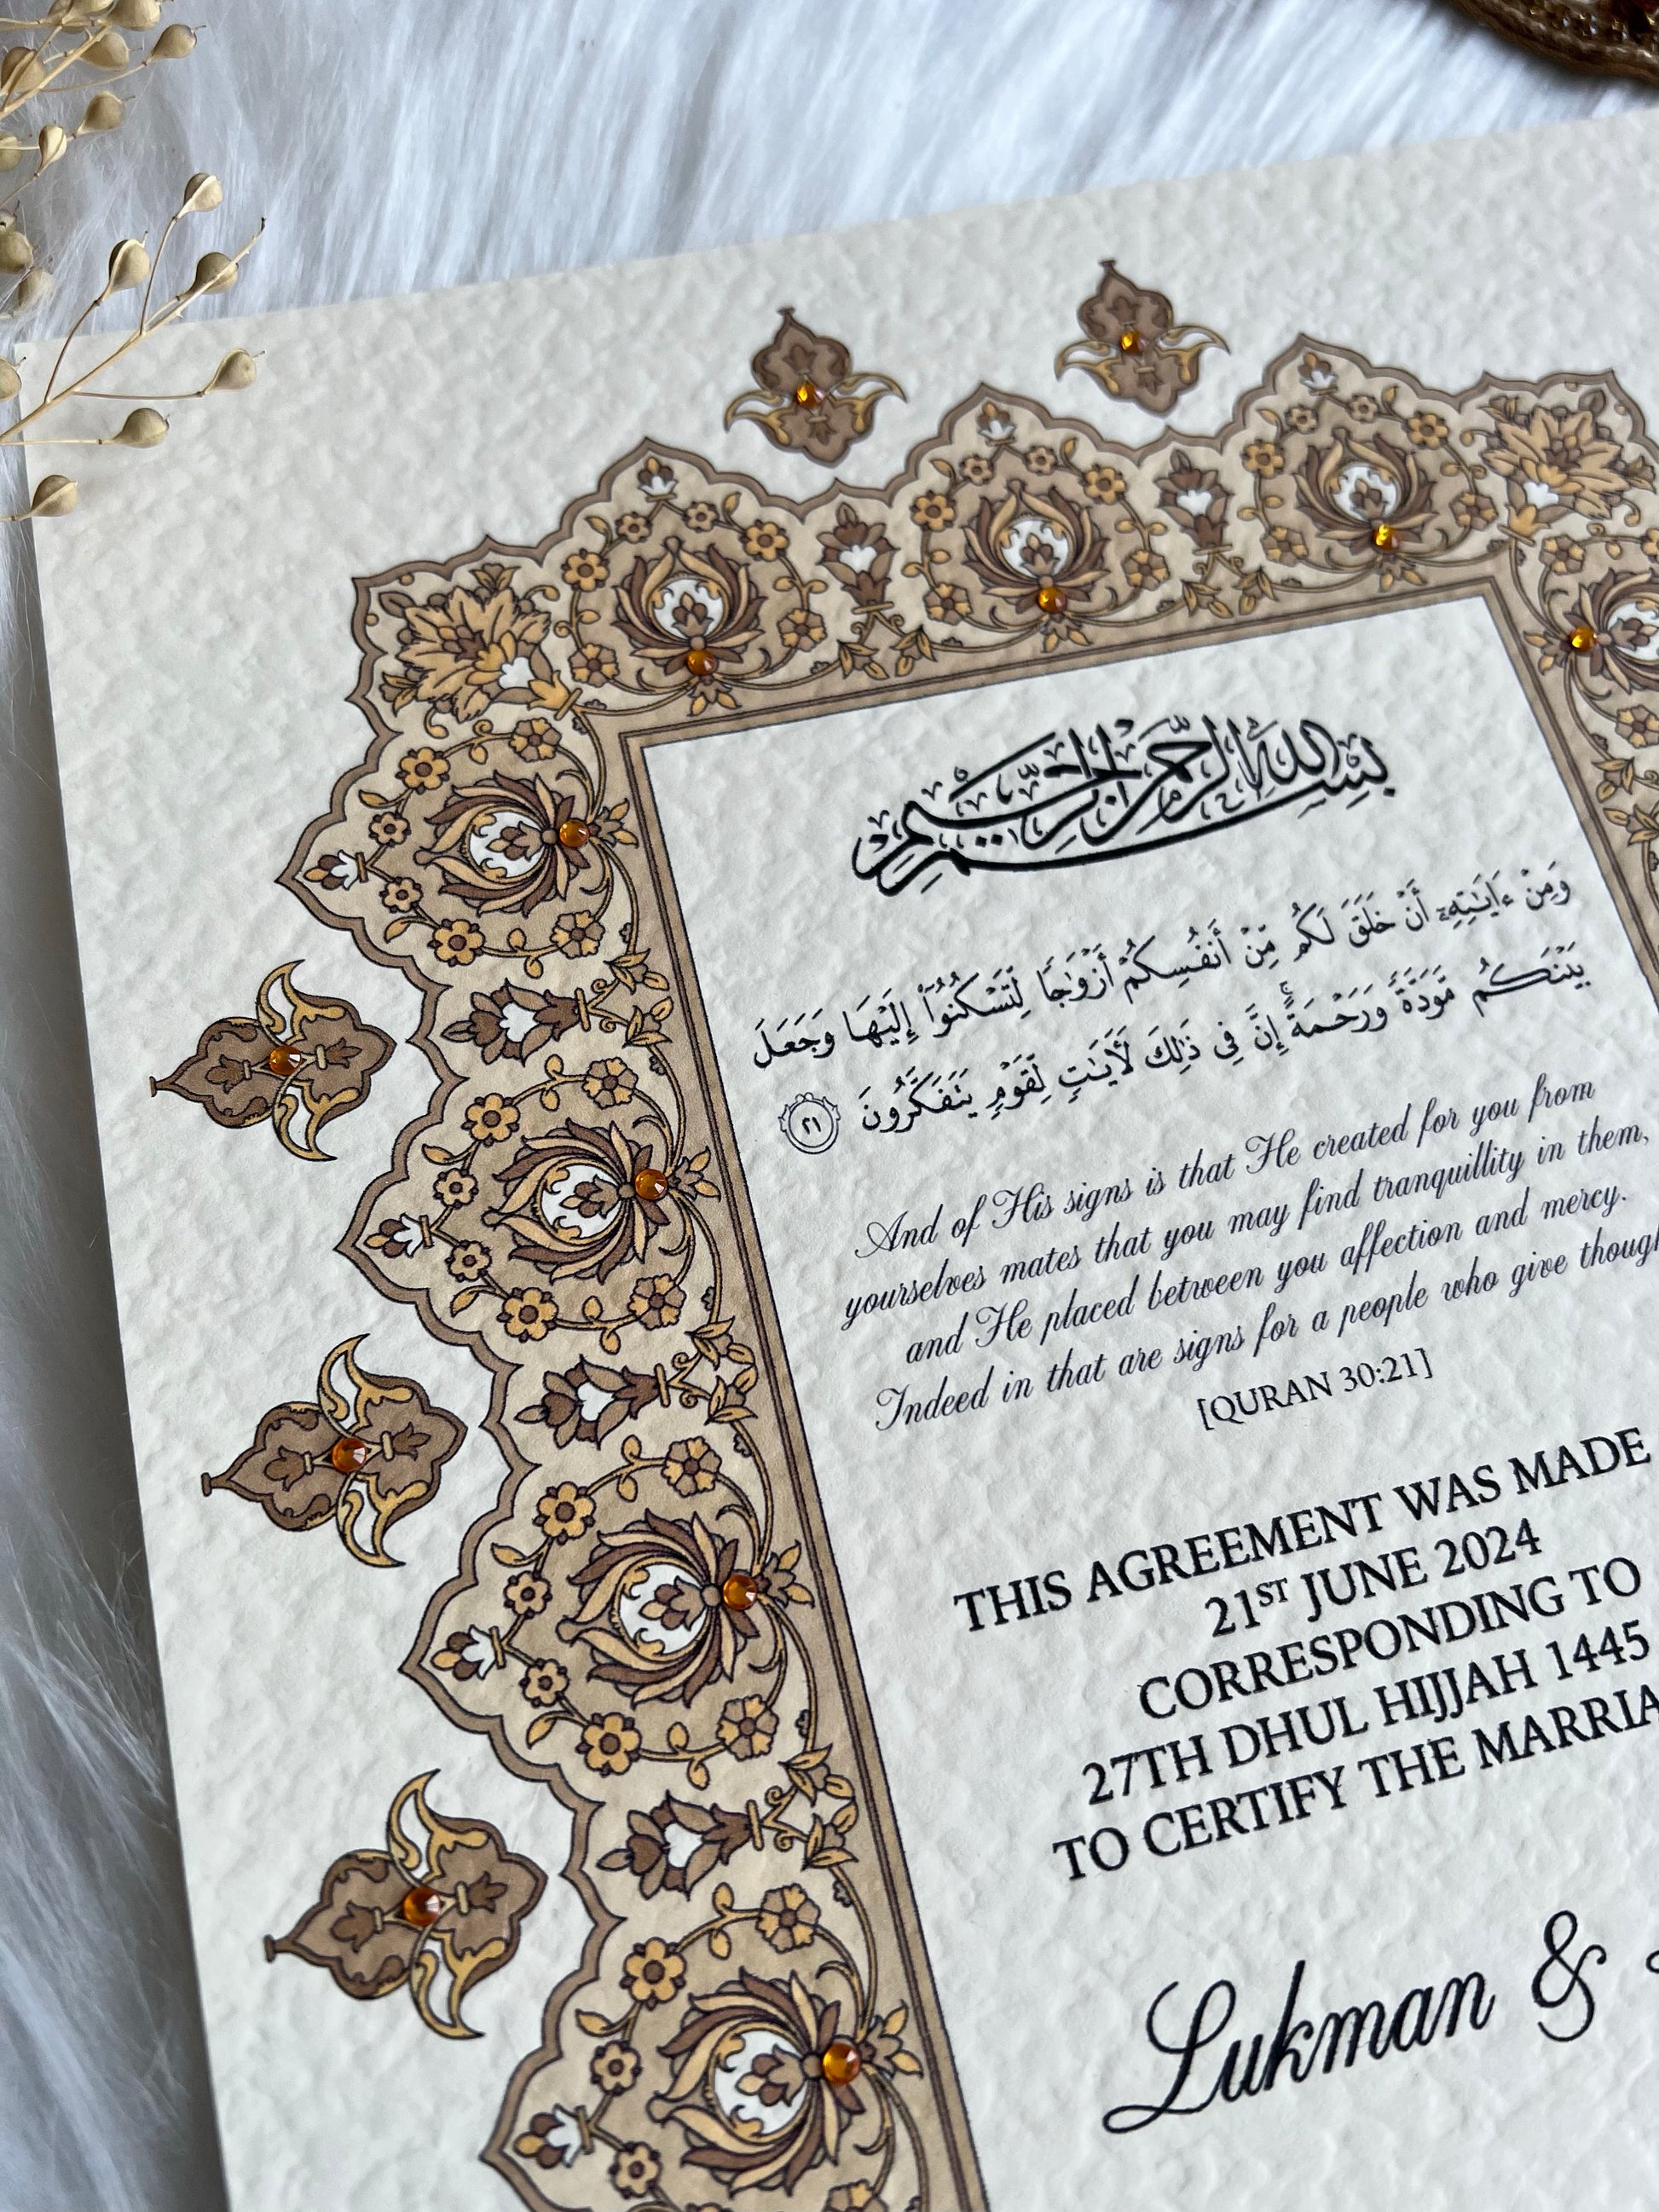 بِسْمِ اللَّهِ الرَّحْمَٰنِ الرَّحِيمِ
وَمِنْ ءَايَٰتِهِۦٓ أَنْ خَلَقَ لَكُم مِّنْ أَنفُسِكُمْ أَزْوَٰجًا لِّتَسْكُنُوٓا۟ إِلَيْهَا وَجَعَلَ
بَيْنَكُم مَّوَدَّةً وَرَحْمَةً ۚ إِنَّ فِى ذَٰلِكَ لَـَٔايَٰتٍ لِّقَوْمٍ يَتَفَكَّرُونَ ٢١
And of His signs is that He created for you from
yourselves mates that you may find tranquillity in them,
and He placed between you affection and mercy.
Indeed in that are signs for a people who give
[QURAN 30:21]
THIS AGREEMENT WAS MADE
21ST JUNE 2024
CORRESPONDING TO
27TH DHUL HIJJAH 1445
TO CERTIFY THE
Lukman &